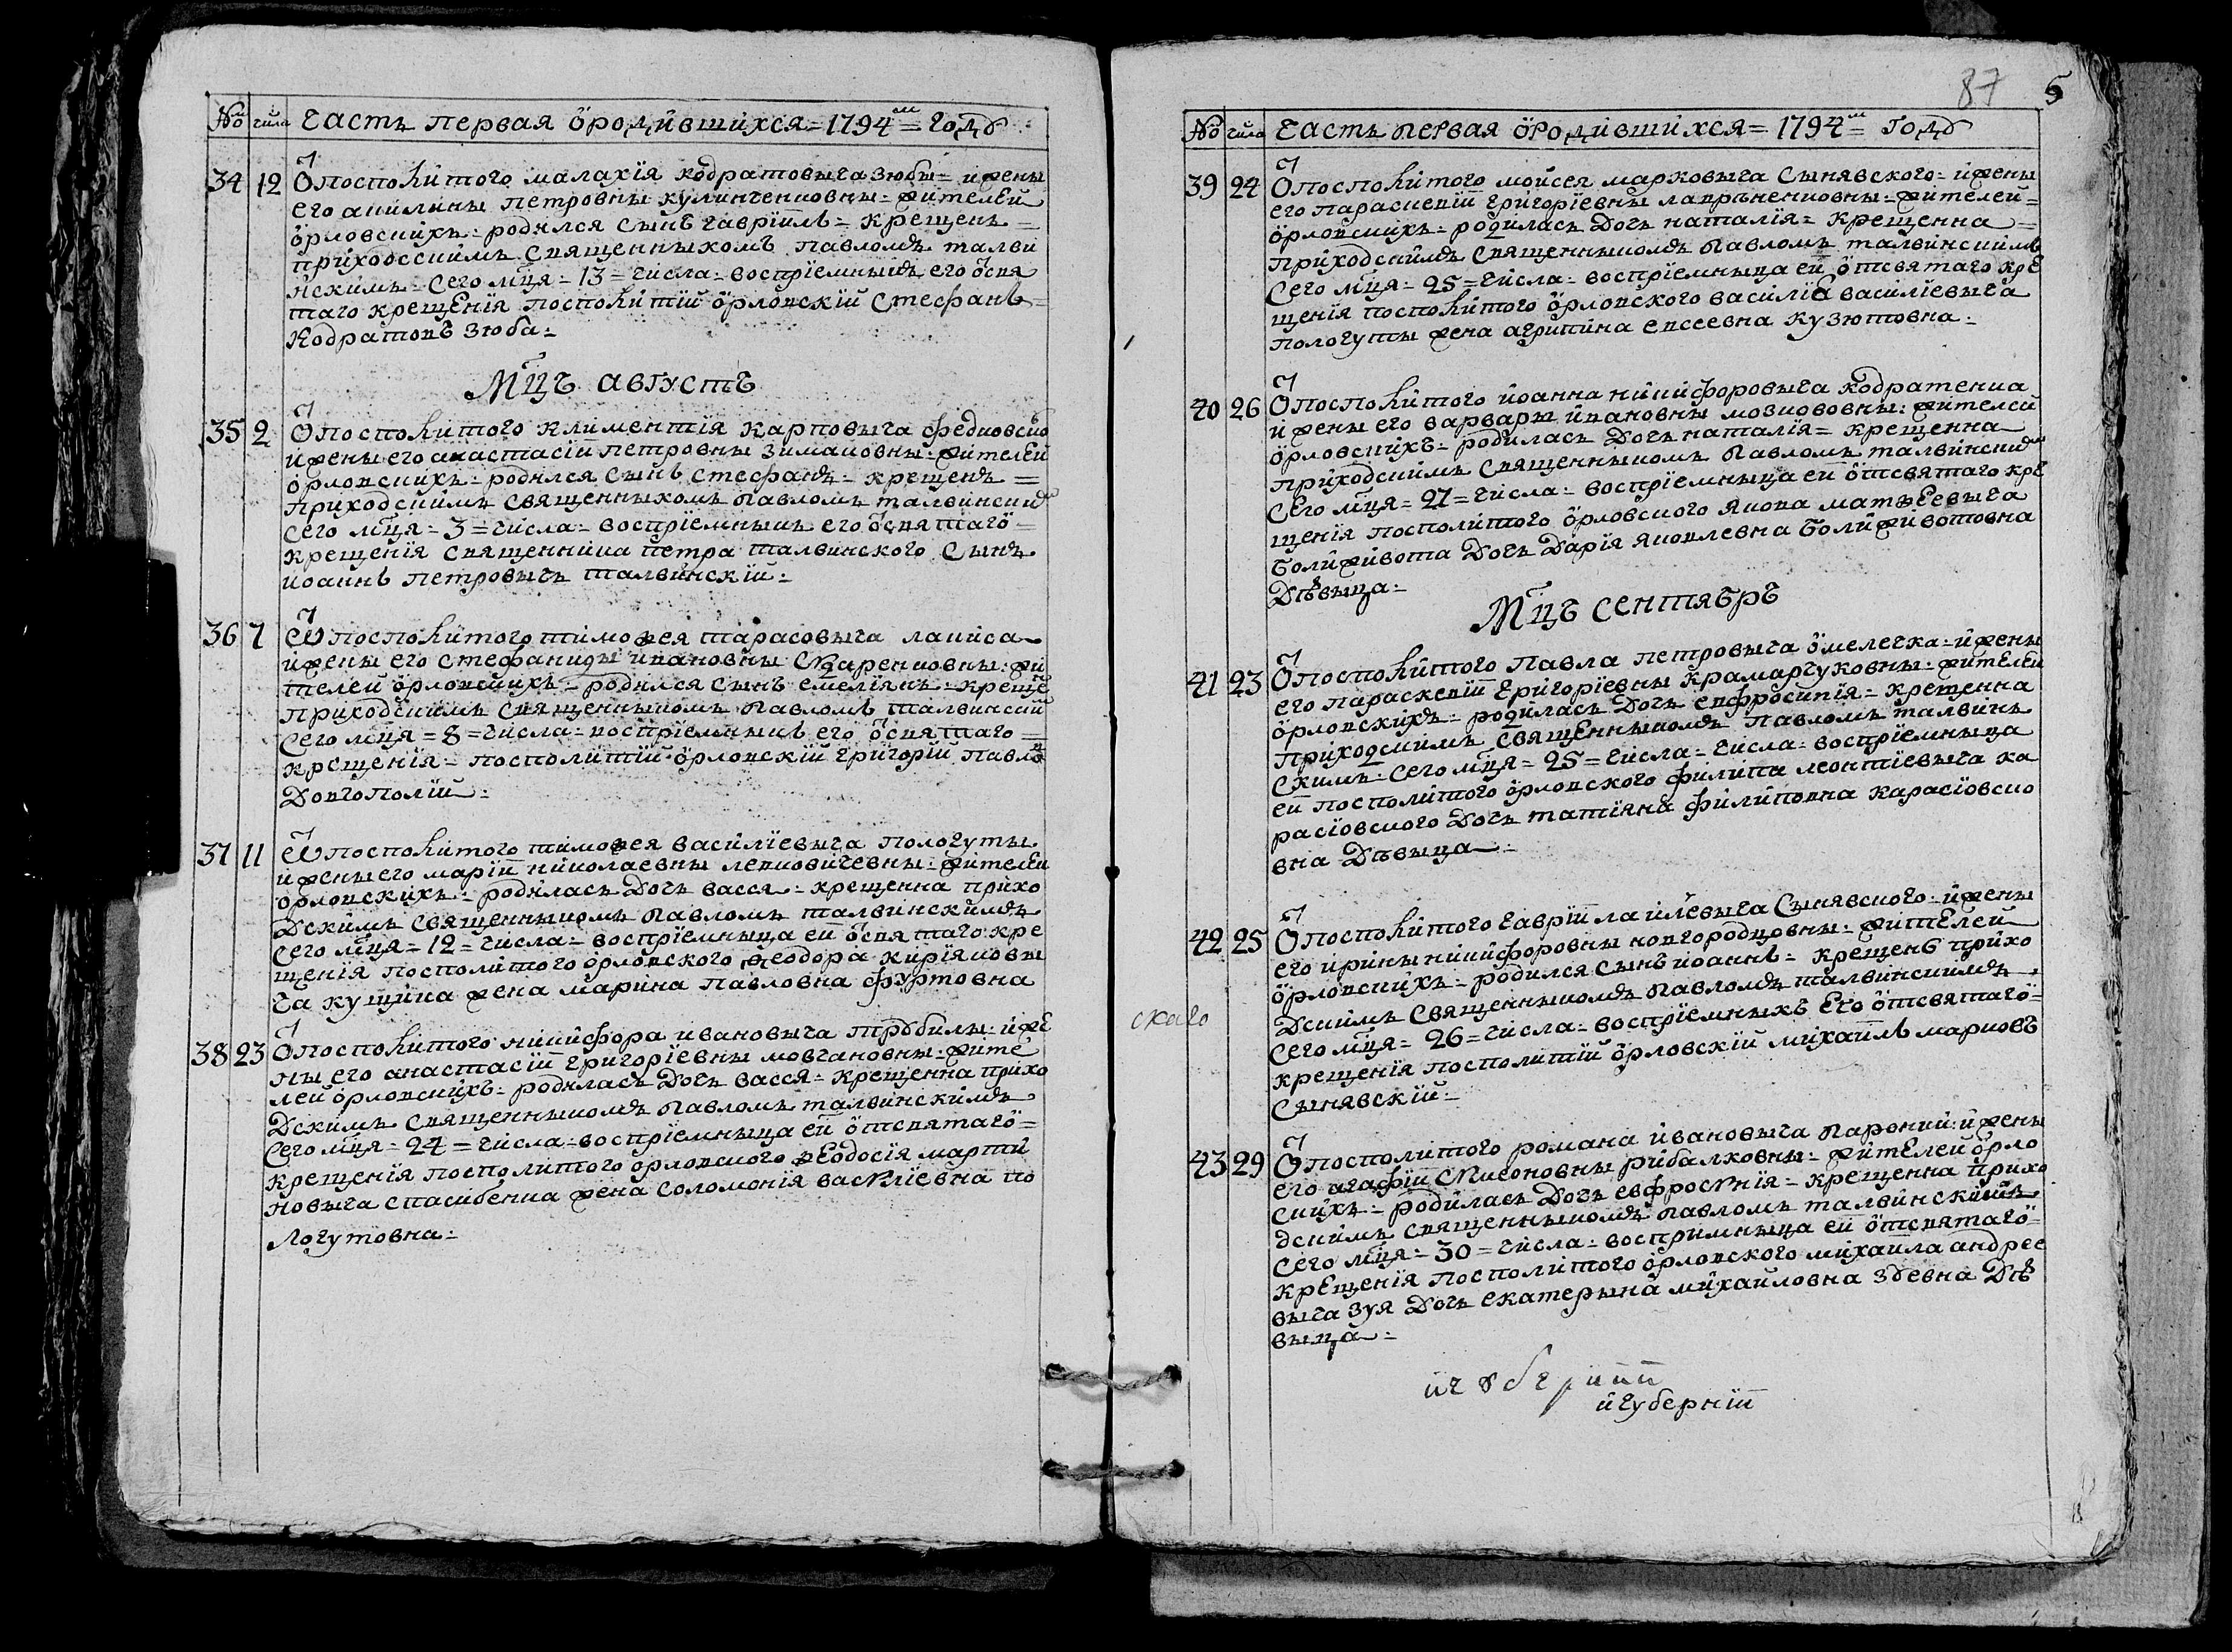 № числа Часть первая о родившихся = 1794м = годȣ
34 12 Ѿ посполитого малахїя кодратовыча зюбы = и жены
его акилины петровны кулинченковны = жителей
орловскихъ = родился сынъ гаврїилъ = крещенъ =
приходсскимъ священныкомъ павломъ талви
нскимъ = сего мця = 13 = числа = воспрїемныкъ его ѿ свя
таго крещенїя посполитїй орловскїй стефанъ =
Кодратовъ зюба =
Мцъ августъ
35 2 Ѿ посполитого климентїя карповыча федковско
и жены его анастасїи петровны зимаковны = жителей
орловскихъ = родился сынъ стефанъ = крещенъ =
приходскимъ священныкомъ павломъ талвински
сего мця = 3 = числа = воспрїемныкъ его ѿ святаго =
крещенїя священника петра талвинского сынъ
иоаннъ петровычъ талвинскїй =
36 7 Ѿ посполитого тимоѳея тарасовыча лаписа
и жены его стефаниды ивановны = жи
телей орловскихъ = родился сынъ емелїянъ = креще
приходскимъ священныкомъ павломъ талвински
сего мця = 8 = числа = воспрїемныкъ его ѿ святаго =
крещенїя = посполитїй орловскїй григорїй павло
Довгополїй =
37 11 Ѿ посполитого тимоѳея василїевыча пологуты
и жены его марїи николаевны левковичевны = жителей
орловскихъ = родилась дочь васся = крещенна прихо
дскимъ священныкомъ павломъ талвинскимъ
сего мця = 12 = числа = воспрїемныца ей ѿ святаго кре
щенїя посполитого орловского ѳеодора кирїяковы
ча кущика жена марина павловна фуртовна
38 23 Ѿ посполитого никифора ивановыча трȣбилы = и же
ны его анастасїи григорїевны мовчановны = жите
лей орловскихъ = родилась дочь васся = крещенна прихо
дскимъ священныкомъ павломъ талвинскимъ
сего мця = 24 = числа = воспрїемныца ей ѿ святаго =
крещенїя посполитого орловского ѳеодосїя марти
новыча спасибенка жена соломонїя василїевна по
логутовна =
87 5
№ числа Часть первая о родившихся = 1794м = годȣ
39 24 Ѿ посполитого мойсея марковыча сынявского = и жены
его параскевїи григорїевны лавриненковны = жителей =
орловскихъ = родилась дочь наталїя = крещенна =
приходскимъ священныкомъ павломъ талвинскимъ
сего мця = 25 = числа = воспрїемныца ей ѿ святаго кре
щенїя посполитого орловского василїа василїевыча
пологуты жена агрипина евсеевна кузютовна =
40 26 Ѿ посполитого иоанна никифоровыча кодратенка
и жены его варвары ивановны мозкововны = жителей
орловскихъ = родилась дочь наталїя = крещенна
приходскимъ священныкомъ павломъ талвинским
сего мця = 27 = числа = воспрїемныца ей ѿ святаго кре
щенїя посполитого орловского якова матѣеевыча
болиживота дочь дарїя яковлевна болиживотовна
дѣвыца =
Мцъ сентябръ
41 23 Ѿ посполитого павла петровыча омелечка = и жены
его параскевїи григорїевны крамарчуковны = жителей
орловскихъ = родилась дочь евфросинїя = крещенна
приходскимъ священныкомъ павломъ талвинъ
скимъ = сего мця = 25 = числа = числа = воспрїемныца
ей посполитого орловского филипа леонтїевыча ка
расїовского дочь татїяна филиповна карасїовско
вна дѣвыца =
42 25 Ѿ посполитого гаврїила илевыча сынявского = и жены
его ирины никифоровны новгородцовны = жителей
орловскихъ = родился сынъ иоаннъ = крещенъ прихо
дскимъ священныкомъ павломъ талвинскимъ
скаго
сего мця = 26 = числа = воспрїемныкъ его ѿ святаго =
крещенїя посполитїй орловскїй михаилъ марковъ
сынявскїй =
43 29 Ѿ посполитого романа ивановыча паронки = и жены
его агафїи рибалковны = жителей орло
скихъ = родилась дочь евфросинїя = крещенна прихо
дскимъ священныкомъ павломъ талвинскимъ
сего мця = 30 = числа = восприемныца ей ѿ святаго =
крещенїя посполитого орловского михаила андрее
выча зуя дочь екатерына михайловна здевна дѣ
выца =
и гȣбернїи
и губернїи